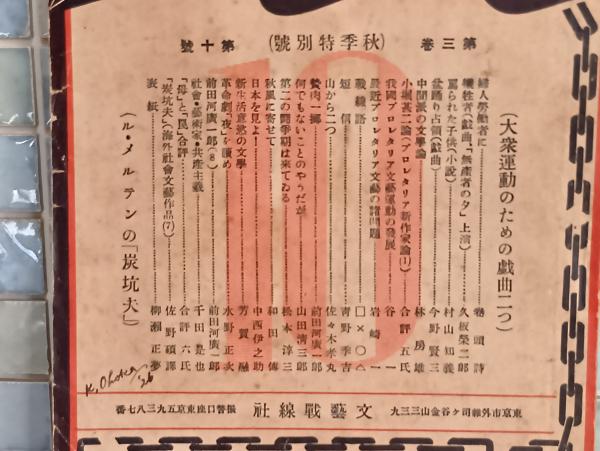 第三卷 (秋季特別號) 第十號
(大衆運動のための戯曲二つ)
婦人勞働者に……卷頭詩
犠牲者(戯曲、「無産者の夕」上演)……久板榮二郎
罵られた子供(小説)……村山知義
盆踊り占領(戯曲)……今野賢三
中間派の文學論……林房雄
小堀甚二論(プロレタリア新作家論(1))……合評五氏
我國プロレタリア文藝運動の發展……谷一
最近プロレタリア文藝の諸問題……岩崎一
戰線語……□×○△
短信……青野季吉
山から二つ……佐々木孝丸
贅肉一擲……前田河廣一郎
何でもないことのやうだが……山田清三郎
第二の闘爭期は來てゐる……松本淳三
秋風に寄せて……和田傳
日本を見よ!……中西伊之助
新生活意慾の文學……芳賀融
革命劇「夜」を讀め……水野正次
前田河廣一郎(8)……前田河廣一郎
社會・藝術家・共産主義……千田是也
「母」と「罠」合評……合評六氏
「炭坑夫」(海外社會文藝作品(7))……佐野碩譯
表紙……柳瀬正夢
(ル・メルテンの「炭坑夫」)
10
東京市外雜司ヶ谷金山三三九
文藝戰線社
振替口座東京五九三八七番